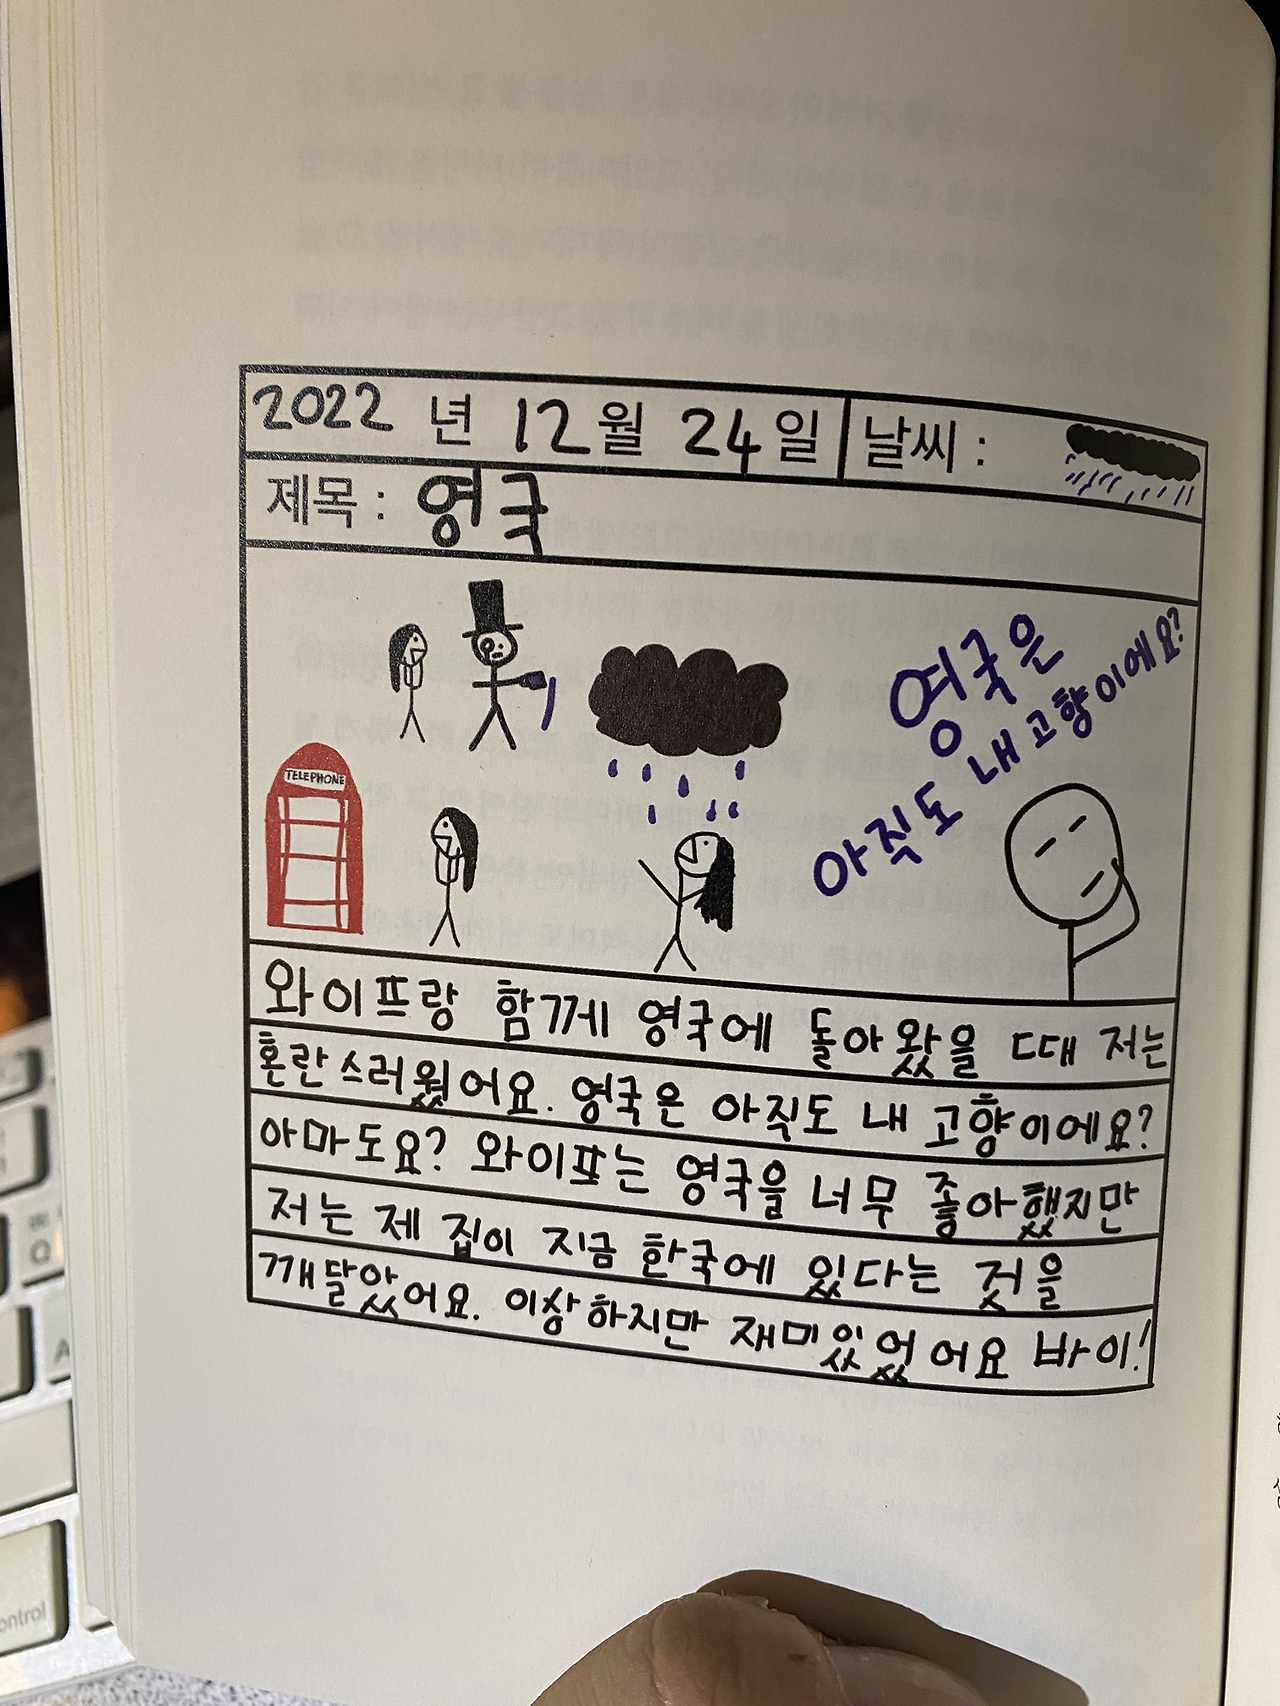 2022 년 12 월 24 일 날씨 :
제목 : 영국
영국은
아직도 내 고향이에요?
TELEPHONE
와이프랑 함께 영국에 돌아왔을 때 저는
혼란스러웠어요. 영국은 아직도 내 고향이에요?
아마도요? 와이프는 영국을 너무 좋아했지만
저는 제 집이 지금 한국에 있다는 것을
깨달았어요. 이상하지만 재미있었어요 바이!
ontrol